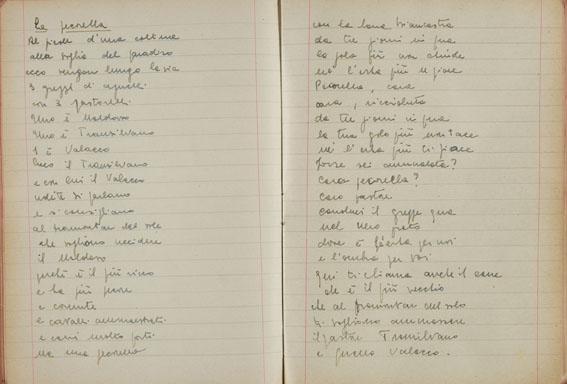 La pecorella
Ai piedi d'una collina
alla soglia del paradiso
ecco vengon lungo la via
3 greggi di agnelli
con 3 pastorelli.
Uno è Moldavo
Uno è Transilvano
1 è Valacco
Ecco il Transilvano
e con lui il Valacco
udite si parlano
e si consigliano
al tramontar del sole
che vogliono uccidere
il Moldavo
perchè è il più ricco
e ha più pecore
e cornute
e cavalli ammaestrati
e cani molto forti
Ma una pecorella
con la lana biancastra
da tre giorni in qua
la gola più non chiude
nè l'erba più le piace
Pecorella, cara
cara, riccioluta
da tre giorni in qua
la tua gola più non tace
nè l'erba più ti piace
Forse sei ammalata?
Cara pecorella?
Caro pastore
conduci il gregge qua
nel nero prato
dove è l'erba per noi
e l'ombra per voi
Qui ti chiama anche il cane
che è il più vecchio
che al tramontar del sole
ti vogliono ammazzare
il pastore Transilvano
e quello Valacco.